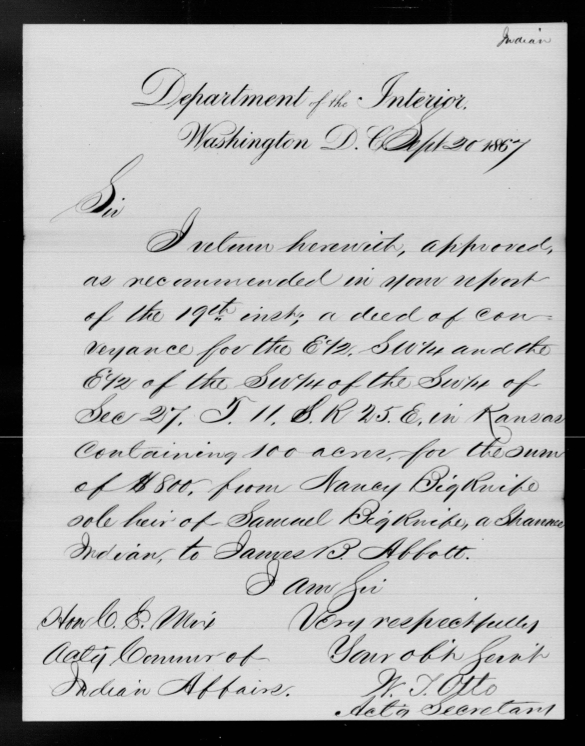 Indian
Department of the Interior,
Washington D. C. Sept 20 1867
Sir
I return herewith, approved,
as recommended in your report
of the 19th inst; a deed of con-
veyance for the E1/2, SW1/4 and the
E1/2 of the SW1/4 of the SW1/4 of
Sec 27, T. 11, S. R 25. E, in Kansas
containing 100 acres, for the sum
of $800, from Nancy BigKnife
sole heir of Samuel BigKnife, a Shawnee
Indian, to James B. Abbott.
I am Sir
Very respectfully
Your ob't Serv't
W. T. Otto
Act'g Secretary
Hon C. E. Mix
Act'g Commr of
Indian Affairs.